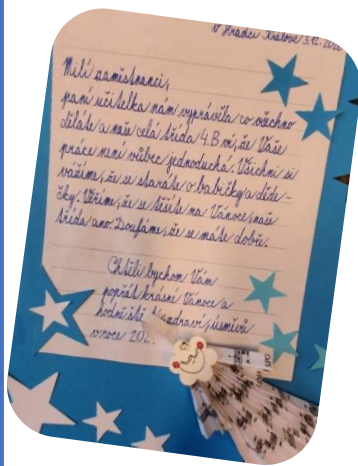 V Hradci Králové 3.12.
Milí zaměstnanci,
paní učitelka nám vyprávěla co všechno
děláte a naše celá třída 4.B ví, že Vaše
práce není vůbec jednoduchá. Všichni si
vážíme, že se staráte o babičky a děde-
čky. Věříme, že se těšíte na Vánoce, naše
třída ano. Doufáme, že se máte dobře.
Chtěli bychom Vám
popřát krásné Vánoce a
hodně ště zdraví, úsměvů
v roce 202